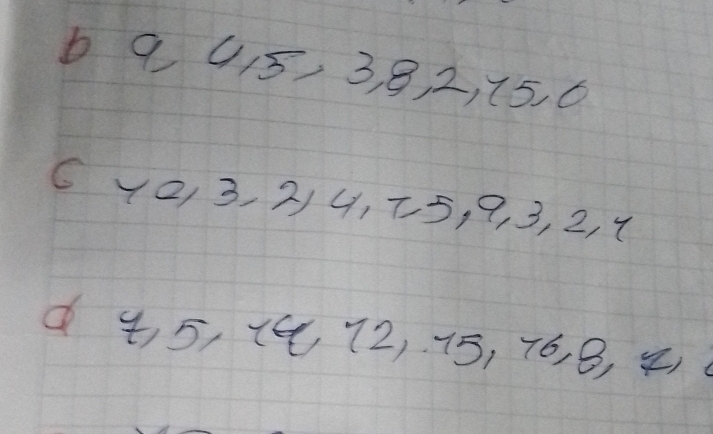 b 9, 4, 5, 3, 8, 2, 15, 6
c 10, 3, 2, 4, 7, 5, 9, 3, 2, 1
d 7, 5, 14, 12, 15, 16, 8, 7,